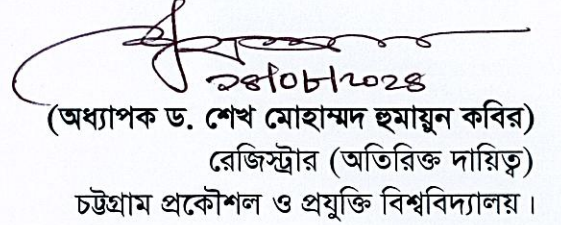 ২৪/০৮/২০২৪
(অধ্যাপক ড. শেখ মোহাম্মদ হুমায়ুন কবির)
রেজিস্ট্রার (অতিরিক্ত দায়িত্ব)
চট্টগ্রাম প্রকৌশল ও প্রযুক্তি বিশ্ববিদ্যালয়।